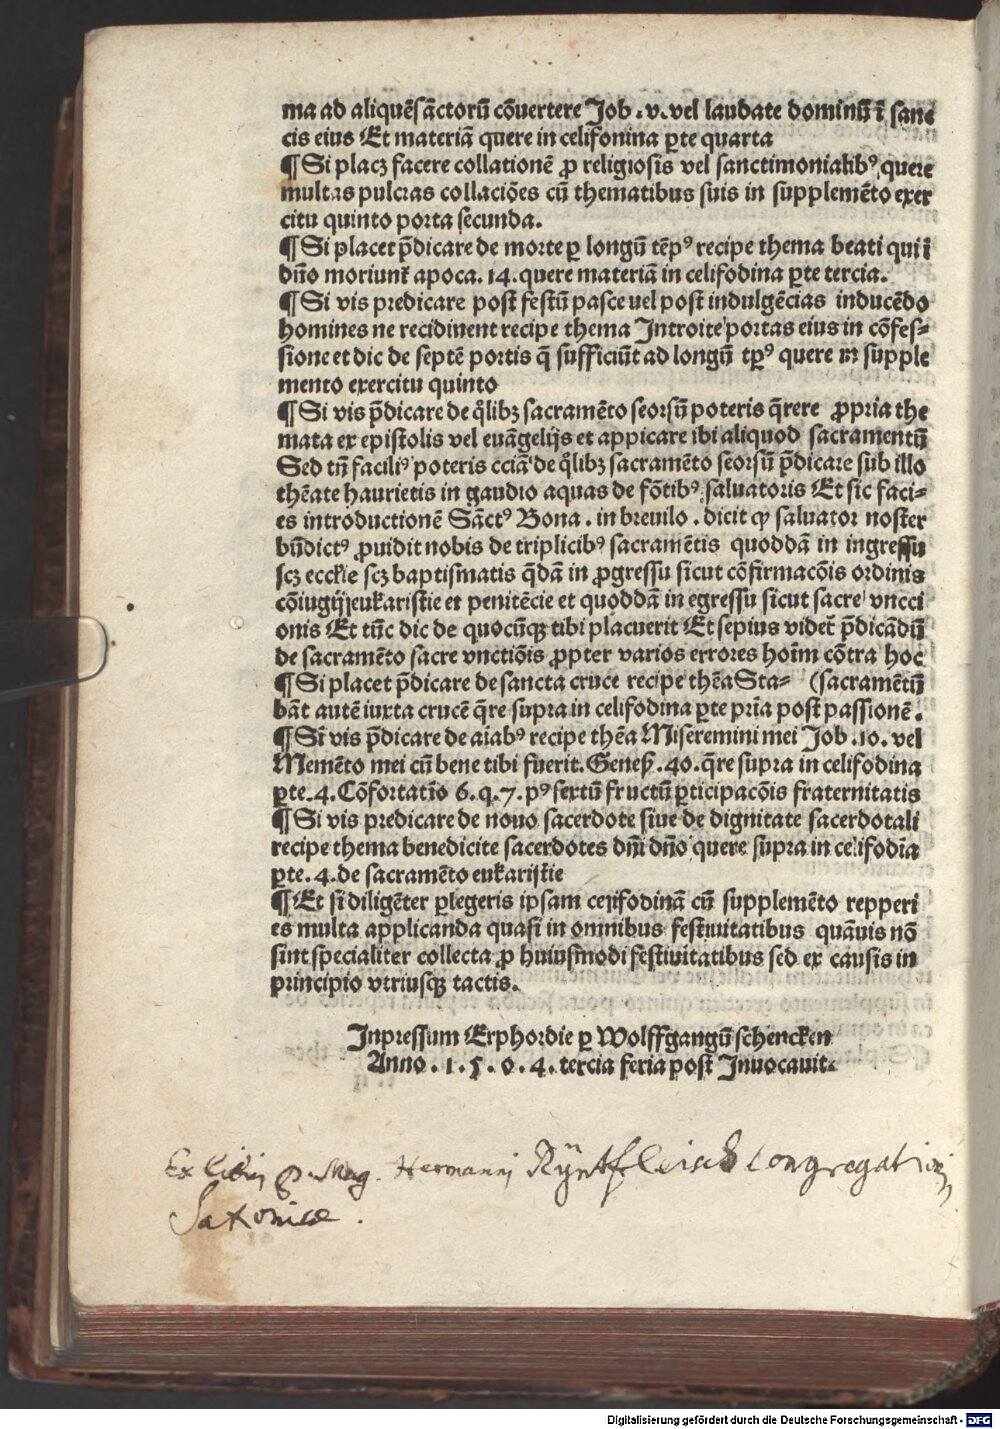 ma ad aliquē sāctorū cōuertere Job .v. vel laudate dominū ī sanc
cis eius Et materiā quere in celifonina ꝑte quarta
¶ Si placꝫ facere collationē ꝓ religiosis vel sanctimonialibꝰ quere
multas pulcras collaciōes cū thematibus suis in supplemēto exer
citu quinto porta secunda.
¶ Si placet p̄dicare de morte ꝑ longū tēpꝰ recipe thema beati qui ī
dn̄o moriunt̄ apoca. 14. quere materiā in celifodina ꝑte tercia.
¶ Si vis predicare post festū pasce uel post indulgēcias inducēdo
homines ne recidinent recipe thema Introite portas eius in cōfes⸗
sione et dic de septē portis q̄ sufficiūt ad longū tꝑꝰ quere in supple
mento exercitu quinto
¶ Si vis p̄dicare de qͥlibꝫ sacramēto seorsū poteris q̄rere ꝓpria the
mata ex epistolis vel euāgelijs et appicare ibi aliquod sacramentū
Sed tn̄ faciliꝰ poteris eciā de qͥlibꝫ sacramēto seorsū p̄dicare sub illo
thēate haurietis in gaudio aquas de fōtibꝰ saluatoris Et sic faci⸗
es introductionē Sāctꝰ Bona. in breuilo. dicit ꝙ saluator noster
bn̄dictꝰ ꝓuidit nobis de triplicibꝰ sacramētis quoddā in ingressu
scꝫ ecckie scꝫ baptismatis q̄dā in ꝓgressu sicut cōfirmacōis ordinis
cōiugij eukaristie et penitēcie et quoddā in egressu sicut sacre vncci
onis Et tūc dic de quocūqꝫ tibi placuerit Et sepius videt̄ p̄dicādū
de sacramēto sacre vnctiōis ꝓpter varios errores hoīm cōtra hoc
¶ Si placet p̄dicare de sancta cruce recipe thēa Sta⸗ (sacramētū
bāt autē iuxta crucē q̄re supra in celifodina ꝑte prīa post passionē.
¶ Si vis p̄dicare de aīabꝰ recipe thēa Miseremini mei Job .10. vel
Memēto mei cū bene tibi fuerit. Geneß .40. q̄re supra in celifodina
ꝑte .4. Cōfortatīo 6. q. 7. pꝰ sextū fructū ꝑticipacōis fraternitatis
¶ Si vis predicare de nouo sacerdote siue de dignitate sacerdotali
recipe thema benedicite sacerdotes dn̄i dn̄o quere supra in celifodīa
ꝑte. 4. de sacramēto eukaristie
¶ Et si diligēter ꝑlegeris ipsam celifodinā cū supplemēto repperi
es multa applicanda quasi in omnibus festiuitatibus quāuis nō
sint specialiter collecta ꝓ huiusmodi festiuitatibus sed ex causis in
principio vtriusqꝫ tactis.
Inpressum Erphordie ꝑ Wolffgangū schencken
Anno . 1. 5. 0. 4. tercia feria post Inuocauit.
Ex libris P. Mag. Hermannj Rÿntfleisch Congregationis
Saxonicæ.